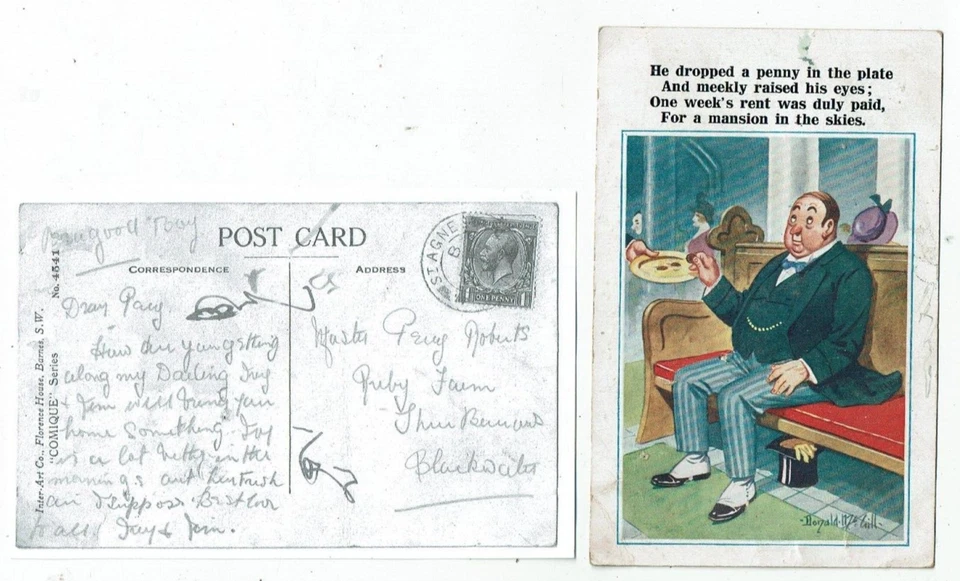 POST CARD
CORRESPONDENCE
ADDRESS
Inter-Art Co., Florence House, Barnes, S.W.
"COMIQUE" Series No. 4541
ST AGNES
ONE PENNY
good Boy
Dray
How are you getting
along my Darling Ivy
Jim will bring you
home Something Ivy
is a lot in the
mornings
air I suppose Best love
to all
Master Roberts
Ruby Farm
Blackwater
He dropped a penny in the plate
And meekly raised his eyes;
One week's rent was duly paid,
For a mansion in the skies.
Donald McGill